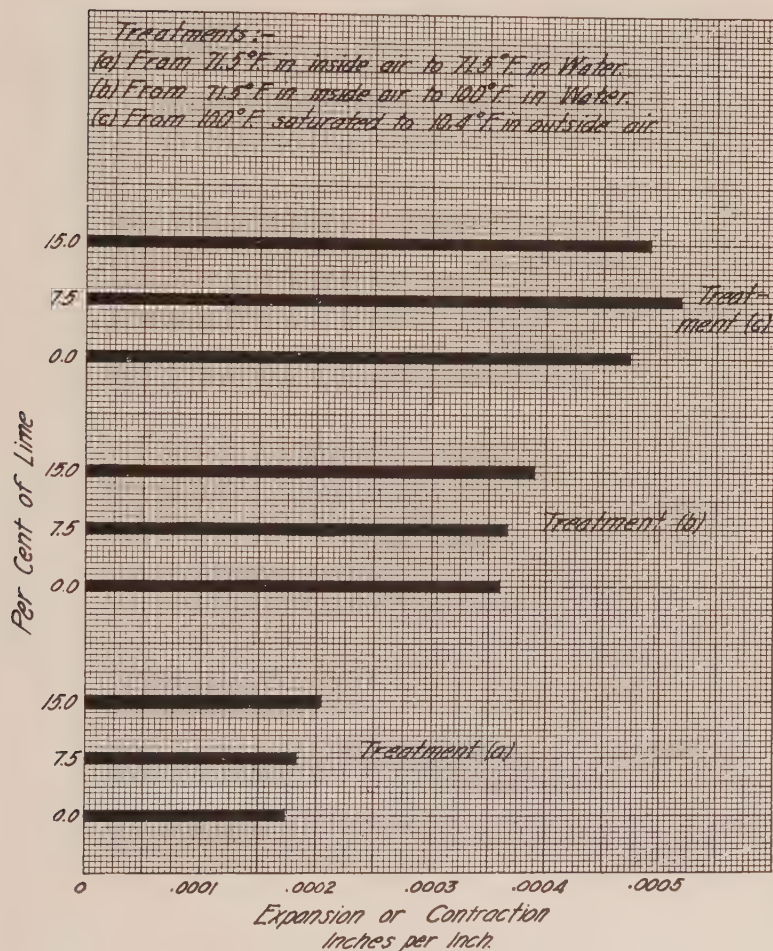 Treatments:-
(a) From 71.5°F. in inside air to 71.5°F. in Water.
(b) From 71.5°F in inside air to 100°F. in Water.
(c) From 100°F. saturated to 10.4°F. in outside air.
15.0
7.5
0.0
Treat-
ment (c)
15.0
7.5
0.0
Treatment (b)
15.0
7.5
0.0
Treatment (a)
Per Cent of Lime
0 .0001 .0002 .0003 .0004 .0005
Expansion or Contraction
Inches per Inch.